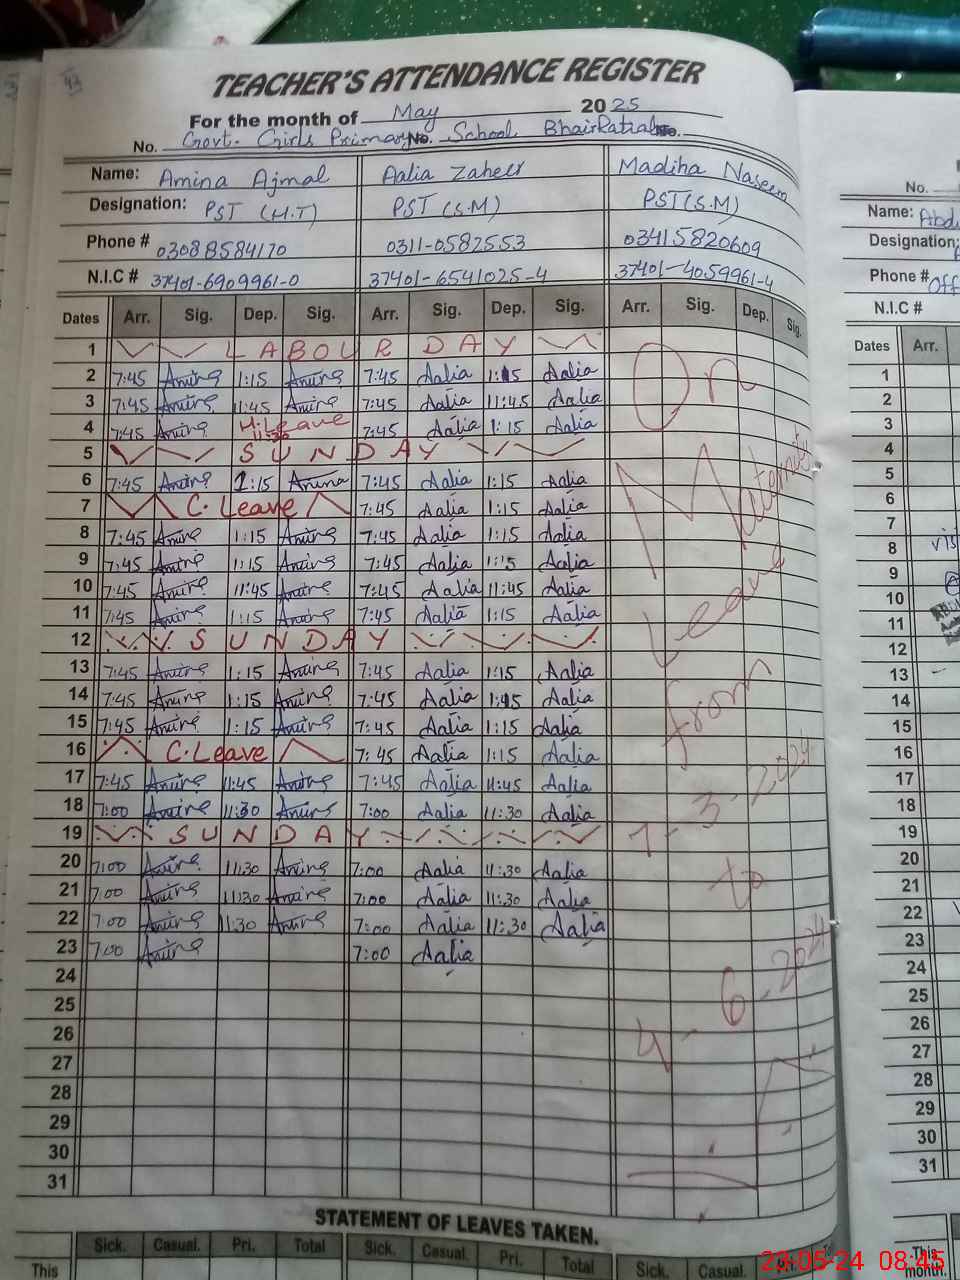 43
TEACHER'S ATTENDANCE REGISTER
For the month of May 2025
No. Govt. Girls Primary No. School Bhair Ratial No.
Name: Amina Ajmal Aalia Zaheer Madiha Naseem
Designation: PST (H.T) PST (S.M) PST (S.M)
Phone # 03088584170 0311-0582553 03415820609
N.I.C # 37401-6909961-0 37401-6541025-4 37401-4059961-4
Dates Arr. Sig. Dep. Sig. Arr. Sig. Dep. Sig. Arr. Sig. Dep. Sig.
1 LABOUR DAY
2 7:45 Amina 1:15 Amina 7:45 Aalia 1:15 Aalia
3 7:45 Amina 11:45 Amina 7:45 Aalia 11:45 Aalia
4 7:45 Amina H.Leave 11:30 7:45 Aalia 1:15 Aalia
5 SUNDAY
6 7:45 Amina 1:15 Amina 7:45 Aalia 1:15 Aalia
7 C.Leave 7:45 Aalia 1:15 Aalia
8 7:45 Amina 1:15 Amina 7:45 Aalia 1:15 Aalia
9 7:45 Amina 1:15 Amina 7:45 Aalia 1:15 Aalia
10 7:45 Amina 11:45 Amina 7:45 Aalia 11:45 Aalia
11 7:45 Amina 1:15 Amina 7:45 Aalia 1:15 Aalia
12 SUNDAY
13 7:45 Amina 1:15 Amina 7:45 Aalia 1:15 Aalia
14 7:45 Amina 1:15 Amina 7:45 Aalia 1:15 Aalia
15 7:45 Amina 1:15 Amina 7:45 Aalia 1:15 Aalia
16 C.Leave 7:45 Aalia 1:15 Aalia
17 7:45 Amina 11:45 Amina 7:45 Aalia 11:45 Aalia
18 7:00 Amina 11:30 Amina 7:00 Aalia 11:30 Aalia
19 SUNDAY
20 7:00 Amina 11:30 Amina 7:00 Aalia 11:30 Aalia
21 7:00 Amina 11:30 Amina 7:00 Aalia 11:30 Aalia
22 7:00 Amina 11:30 Amina 7:00 Aalia 11:30 Aalia
23 7:00 Amina 7:00 Aalia
24
25
26
27
28
29
30
31
On
Maternity
Leave
from
7-3-2024
to
4-6-2024
STATEMENT OF LEAVES TAKEN.
Sick. Casual. Pri. Total Sick. Casual. Pri. Total Sick. Casual. Pri.
This
No.
Name: Abd
Designation:
Phone # Off
N.I.C #
Dates Arr.
1
2
3
4
5
6
7
8 vis
9
10
11
12
13
14
15
16
17
18
19
20
21
22
23
24
25
26
27
28
29
30
31
This
month.
23-05-24 08:45